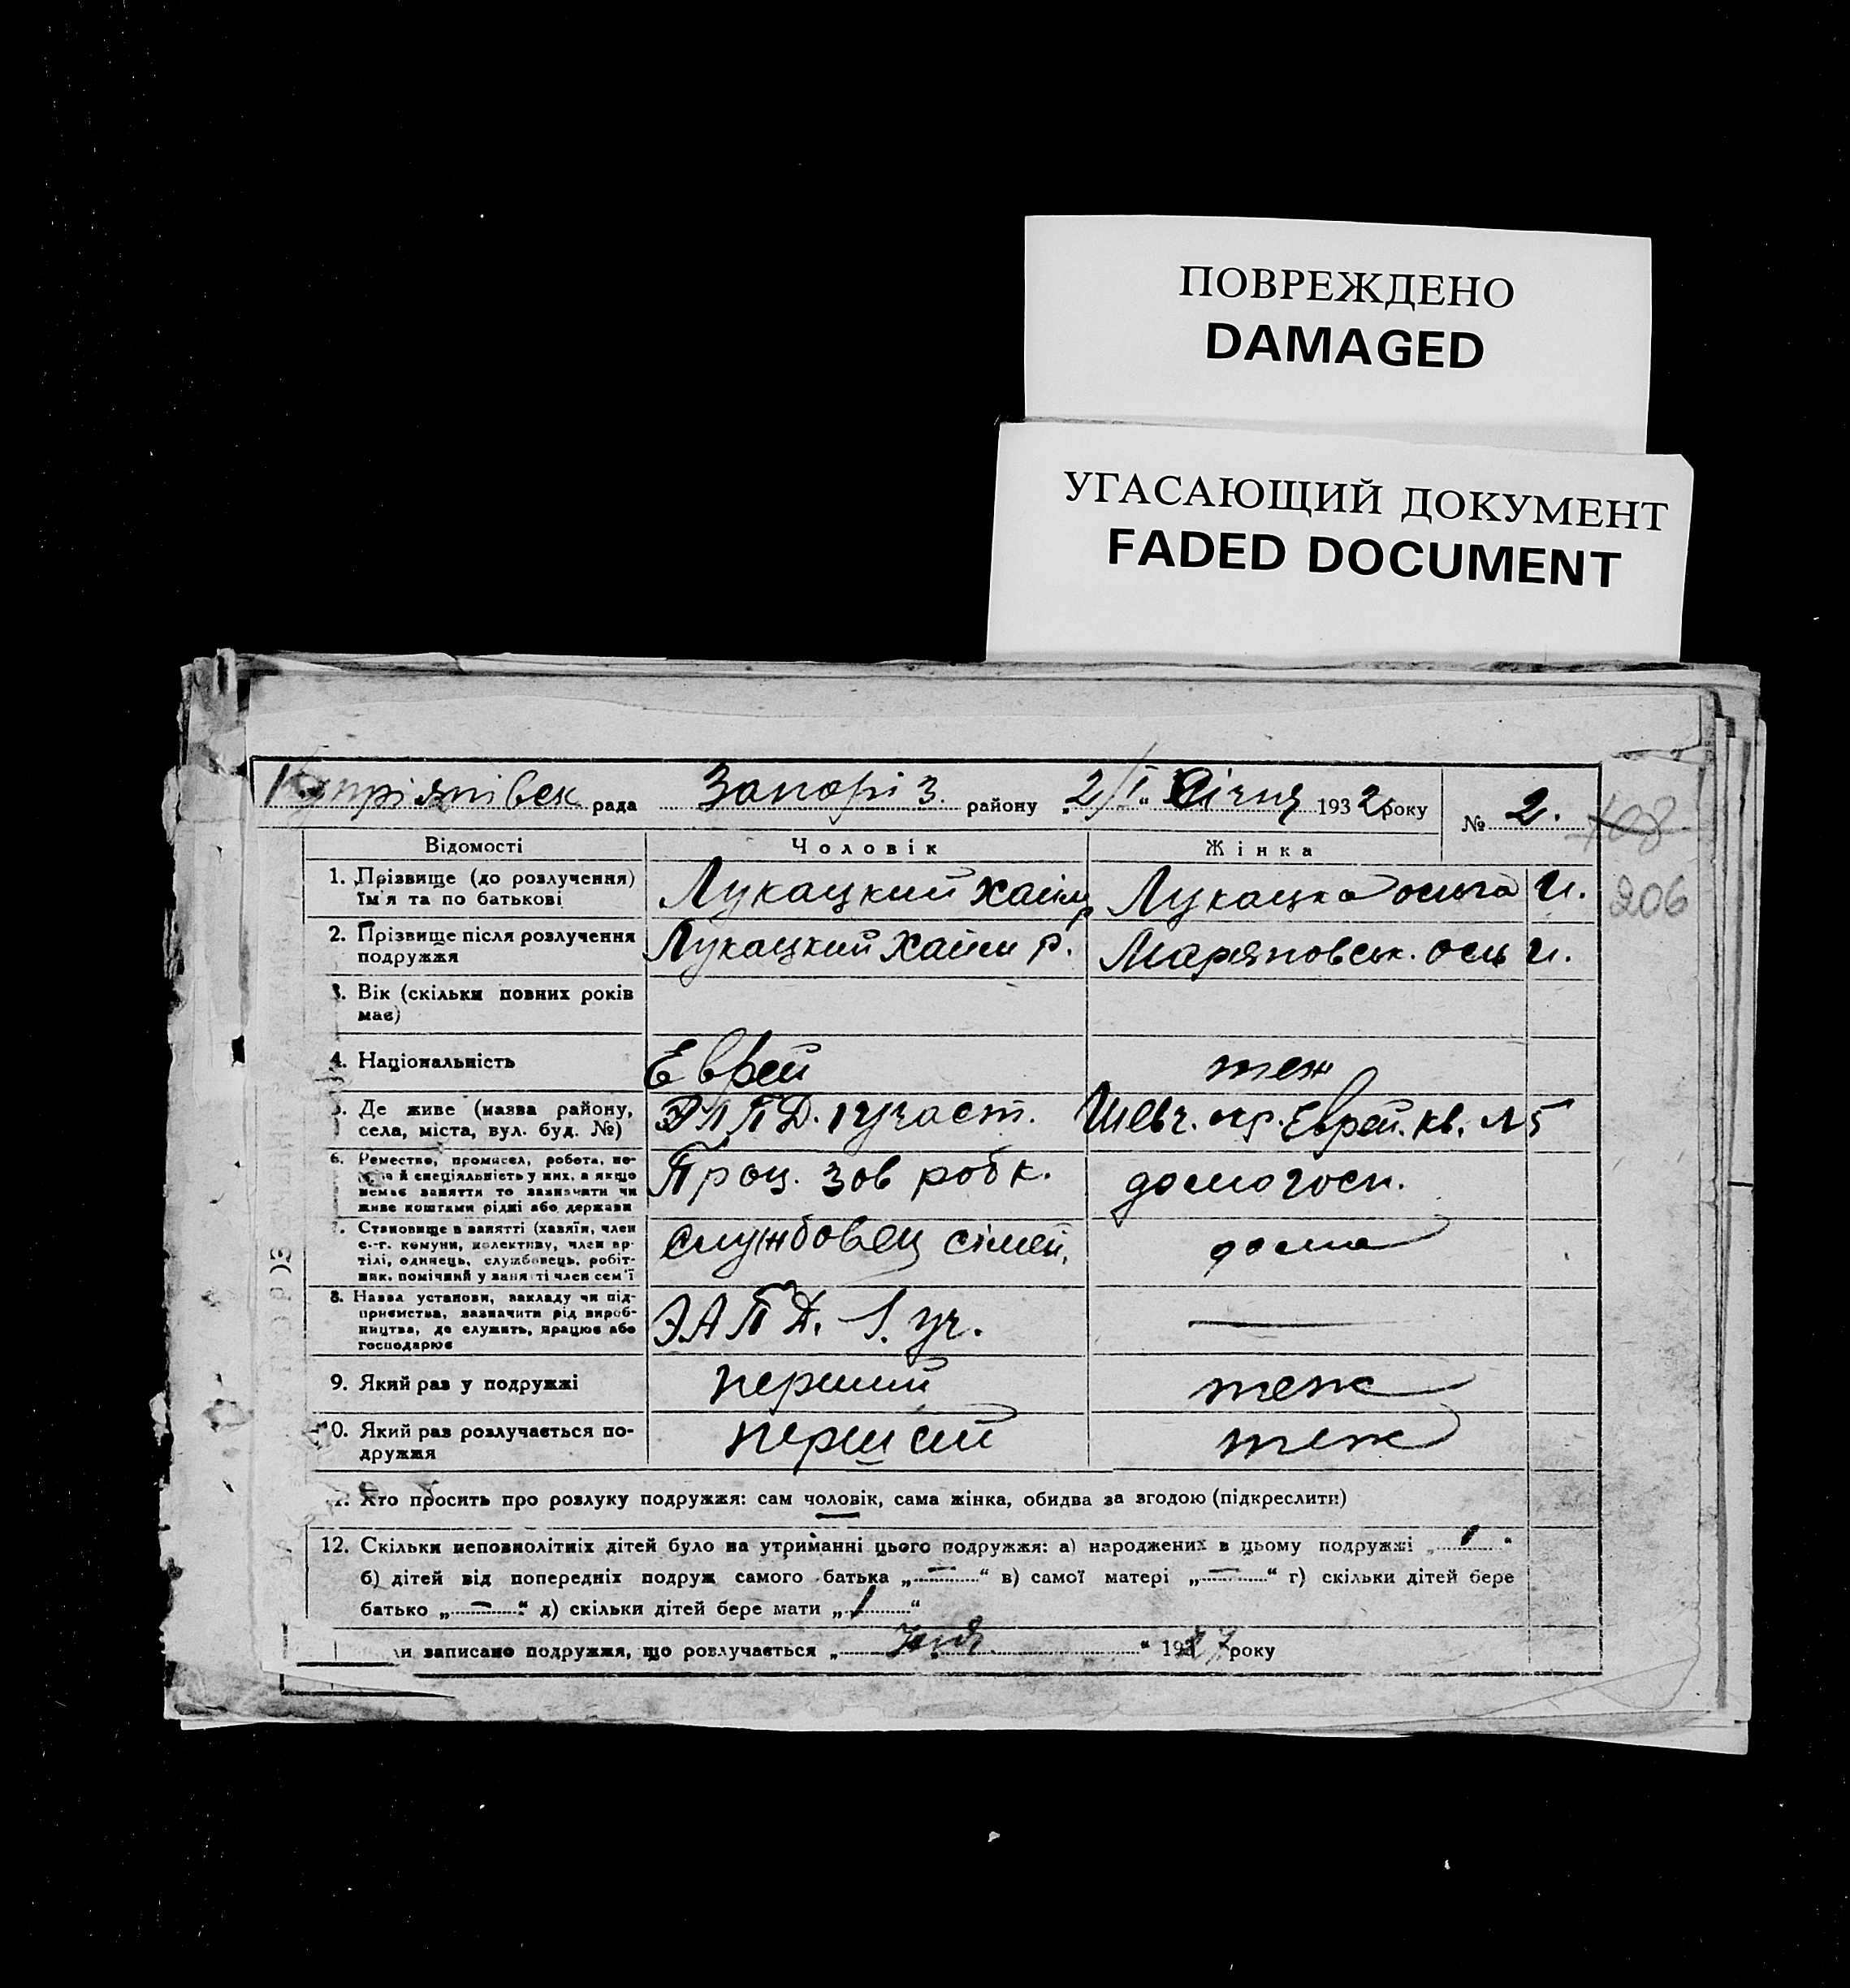 ПОВРЕЖДЕНО
DAMAGED
УГАСАЮЩИЙ ДОКУМЕНТ
FADED DOCUMENT
рада Запоріз. району „2/I“ Січня 1932 року № 2.
108
206
Відомості Чоловік Жінка
1. Прізвище (до розлучення) їм'я та по батькові Лукацкий Хаім Р Лукацка И.
2. Прізвище після розлучення подружжя Лукацкий Хаим Р. Маряновськ. И.
3. Вік (скільки повних років має)
4. Національність Еврей теж
5. Де живе (назва району, села, міста, вул. буд. №) 1 участ. Шевч. Еврей. кв. №5
6. Ремество, промисел, робота, й спеціяльність у них, а якщо немає заняття то зазначити чи живе коштами рідні або держави домогосп.
7. Становище в занятті (хазяїн, член с.-г. комуни, колективу, член артілі, одинець, службовець, робітник, помічний у занятті член сем'ї службовец сімей, дома
8. Назва установи, закладу чи підприємства, зазначити рід виробництва, де служить, працює або господарює 1. уч. —
9. Який раз у подружжі перший теж
10. Який раз розлучається подружжя перший теж
11. Хто просить про розлуку подружжя: сам чоловік, сама жінка, обидва за згодою (підкреслити)
12. Скільки неповнолітніх дітей було на утриманні цього подружжя: а) народжених в цьому подружжі „1“
б) дітей від попередніх подруж самого батька „—“ в) самої матері „—“ г) скільки дітей бере
батько „—“ д) скільки дітей бере мати „1“
и записано подружжя, що розлучається „ “ 1927 року